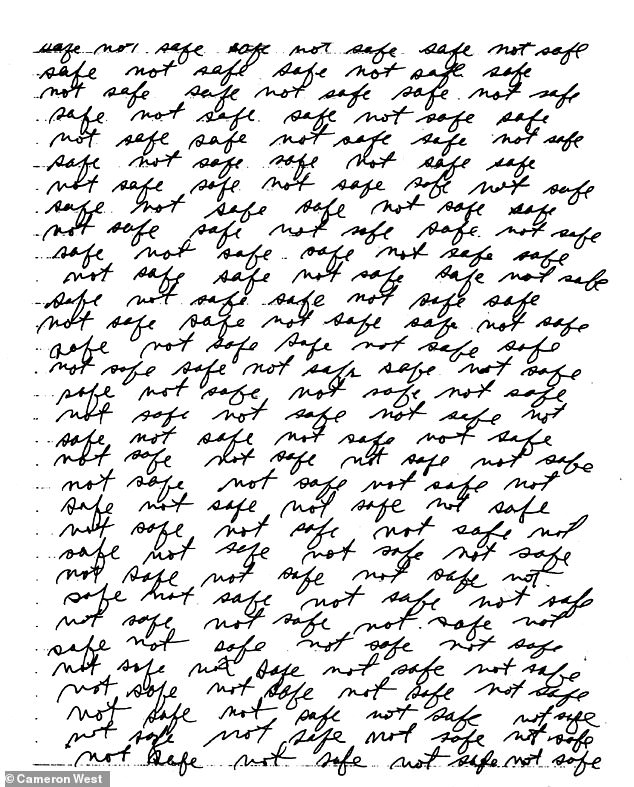 safe not safe safe not safe safe not safe
safe not safe safe not safe safe
not safe safe not safe safe not safe
safe not safe safe not safe safe
not safe safe not safe safe not safe
safe not safe safe not safe safe
not safe safe not safe safe not safe
safe not safe safe not safe safe
not safe safe not safe safe not safe
safe not safe safe not safe safe
not safe safe not safe safe not safe
safe not safe safe not safe safe
not safe safe not safe safe not safe
safe not safe safe not safe safe
not safe safe not safe safe not safe
safe not safe not safe not safe
not safe not safe not safe not
safe not safe not safe not safe
not safe not safe not safe not safe
not safe not safe not safe not
safe not safe not safe not safe
not safe not safe not safe not
safe not safe not safe not safe
not safe not safe not safe not
safe not safe not safe not safe
not safe not safe not safe not
safe not safe not safe not safe
not safe not safe not safe not safe
not safe not safe not safe not safe
not safe not safe not safe not safe
not safe not safe not safe not safe
not safe not safe not safe not safe
© Cameron West